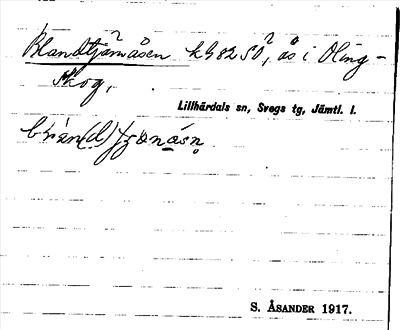 Blandtjärnåsen k 982 SÖ, ås i Öling-
skog,
Lillhärdals sn, Svegs tg, Jämtl. l.
S. ÅSANDER 1917.